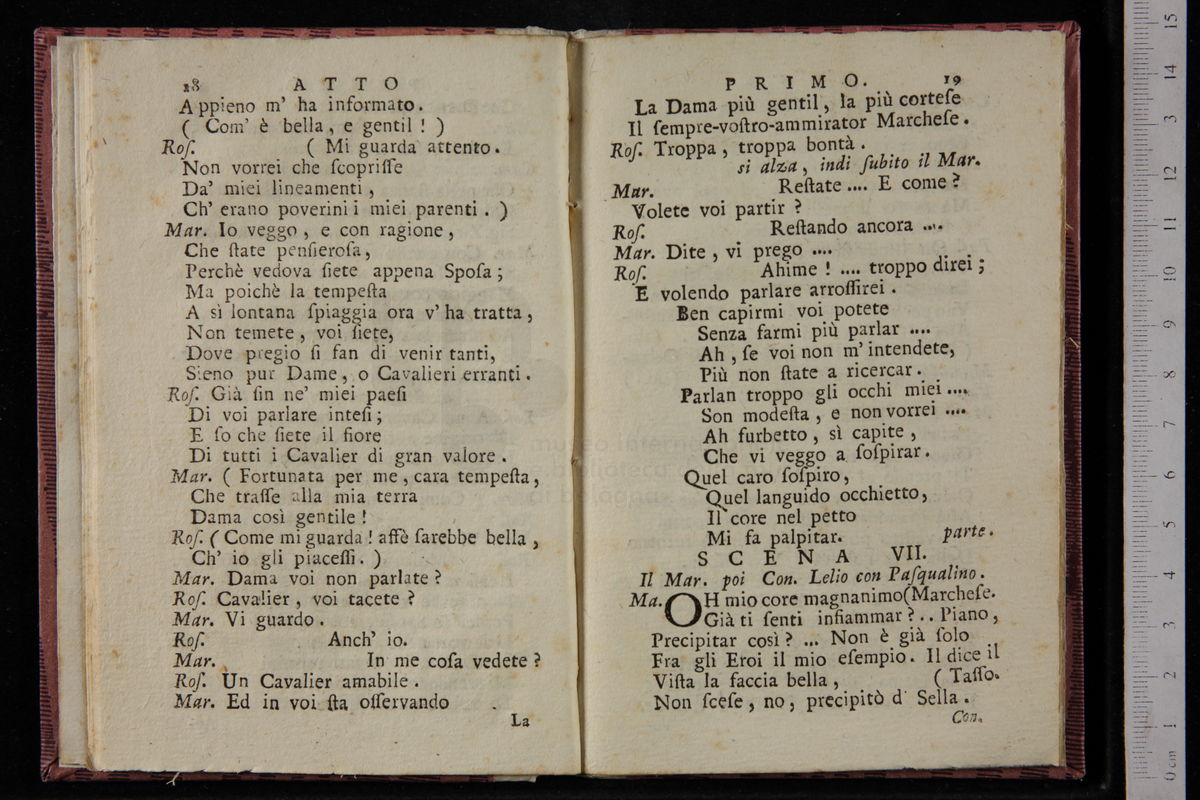 18 ATTO
Appieno m' ha informato.
( Com' è bella, e gentil ! )
Roſ. ( Mi guarda attento.
Non vorrei che ſcopriſſe
Da' miei lineamenti,
Ch' erano poverini i miei parenti. )
Mar. Io veggo, e con ragione,
Che ſtate penſieroſa,
Perchè vedova ſiete appena Spoſa;
Ma poichè la tempeſta
A sì lontana ſpiaggia ora v' ha tratta,
Non temete, voi ſiete,
Dove pregio ſi fan di venir tanti,
Sieno pur Dame, o Cavalieri erranti.
Roſ. Già ſin ne' miei paeſi
Di voi parlare inteſi;
E ſo che ſiete il fiore
Di tutti i Cavalier di gran valore.
Mar. ( Fortunata per me, cara tempeſta,
Che traſſe alla mia terra
Dama così gentile!
Roſ. ( Come mi guarda! affè ſarebbe bella,
Ch' io gli piaceſſi. )
Mar. Dama voi non parlate?
Roſ. Cavalier, voi tacete?
Mar. Vi guardo.
Roſ. Anch' io.
Mar. In me coſa vedete?
Roſ. Un Cavalier amabile.
Mar. Ed in voi ſta oſſervando
La
PRIMO. 19
La Dama più gentil, la più corteſe
Il ſempre-voſtro-ammirator Marcheſe.
Roſ. Troppa, troppa bontà.
si alza, indi ſubito il Mar.
Mar. Reſtate .... E come?
Volete voi partir ?
Roſ. Reſtando ancora ....
Mar. Dite, vi prego ....
Roſ. Ahime ! .... troppo direi;
E volendo parlare arroſſirei.
Ben capirmi voi potete
Senza farmi più parlar ....
Ah, ſe voi non m' intendete,
Più non ſtate a ricercar.
Parlan troppo gli occhi miei ....
Son modeſta, e non vorrei ....
Ah furbetto, sì capite,
Che vi veggo a ſoſpirar.
Quel caro ſoſpiro,
Quel languido occhietto,
Il core nel petto
Mi fa palpitar. parte.
SCENA VII.
Il Mar. poi Con. Lelio con Paſqualino.
Ma. OH mio core magnanimo(Marcheſe.
Già ti ſenti infiammar ? .. Piano,
Precipitar così ? ... Non è già ſolo
Fra gli Eroi il mio eſempio. Il dice il
Viſta la faccia bella, ( Taſſo.
Non ſceſe, no, precipitò d' Sella.
Con.